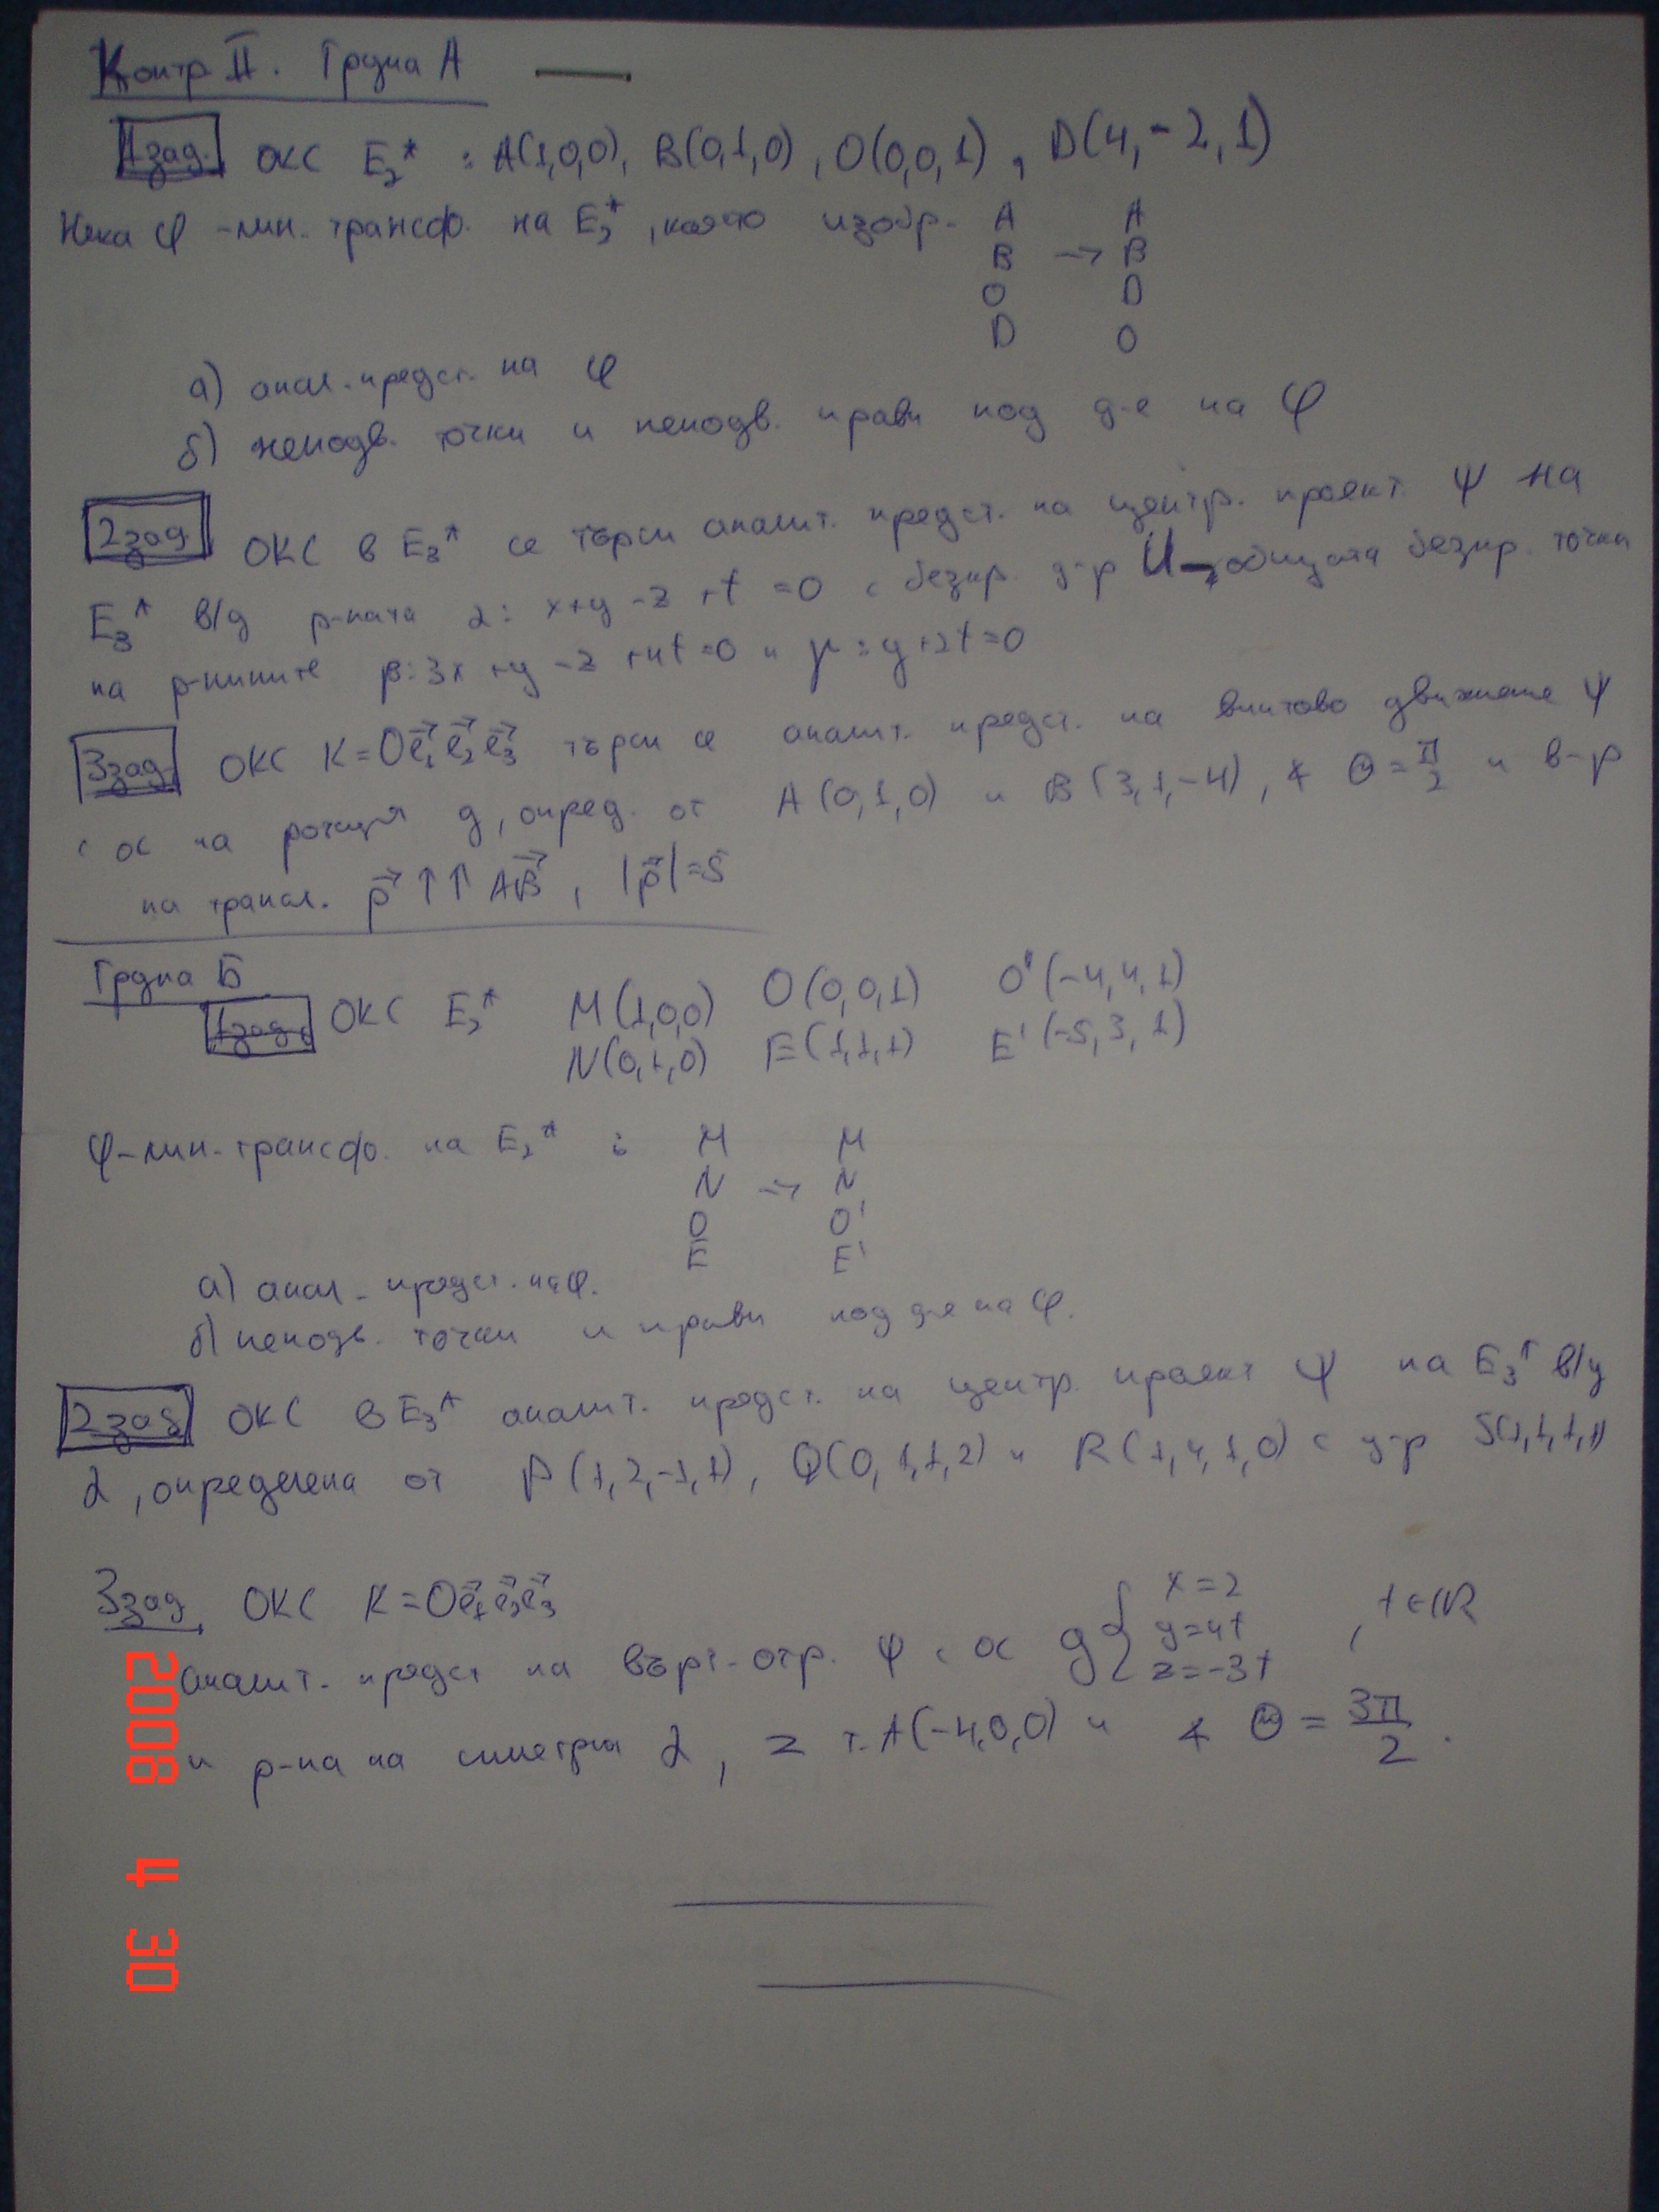 Контр II. Група А
1зад. ОКС E₂* : A(1,0,0), B(0,1,0), O(0,0,1), D(4,-2,1)
Нека φ - лин. трансф. на E₂*, която изобр. A A
B → B
O D
D O
а) анал. предст. на φ
б) неподв. точки и неподв. прави под д-е на φ
2зад. ОКС в E₃* се търси аналит. предст. на центр. проект. ψ на
E₃* в/у р-ната α: x+y-z+t=0 с безкр. ц-р U - общата безкр. точка
на р-нините β: 3x+y-z+4t=0 и γ: y+2t=0
3зад. ОКС K=Oe⃗₁e⃗₂e⃗₃ търси се аналит. предст. на винтово движение ψ
с ос на ротация g, опред. от A(0,1,0) и B(3,1,-4), ∢ Θ=π/2 и в-р
на трансл. p⃗ ↑↑ AB⃗, |p⃗|=5
Група Б
1зад. ОКС E₂* M(1,0,0) O(0,0,1) O'(-4,4,1)
N(0,1,0) E(1,1,1) E'(-5,3,1)
φ-лин. трансф. на E₂* : M M
N → N
O O'
E E'
а) анал. предст. на φ.
б) неподв. точки и прави под д-е на φ.
2зад. ОКС в E₃* аналит. предст. на центр. проект ψ на E₃* в/у
α, определена от P(1,2,-1,1), Q(0,1,1,2) и R(1,4,1,0) с ц-р S(1,1,1,1)
3зад. ОКС K=Oe⃗₁e⃗₂e⃗₃
аналит. предст на върт. отр. φ с ос g { x=2
y=4t
z=-3t , t∈ℝ
и р-на на симетрия α, z т. A(-4,0,0) и ∢ Θ = 3π/2.
2008 4 30